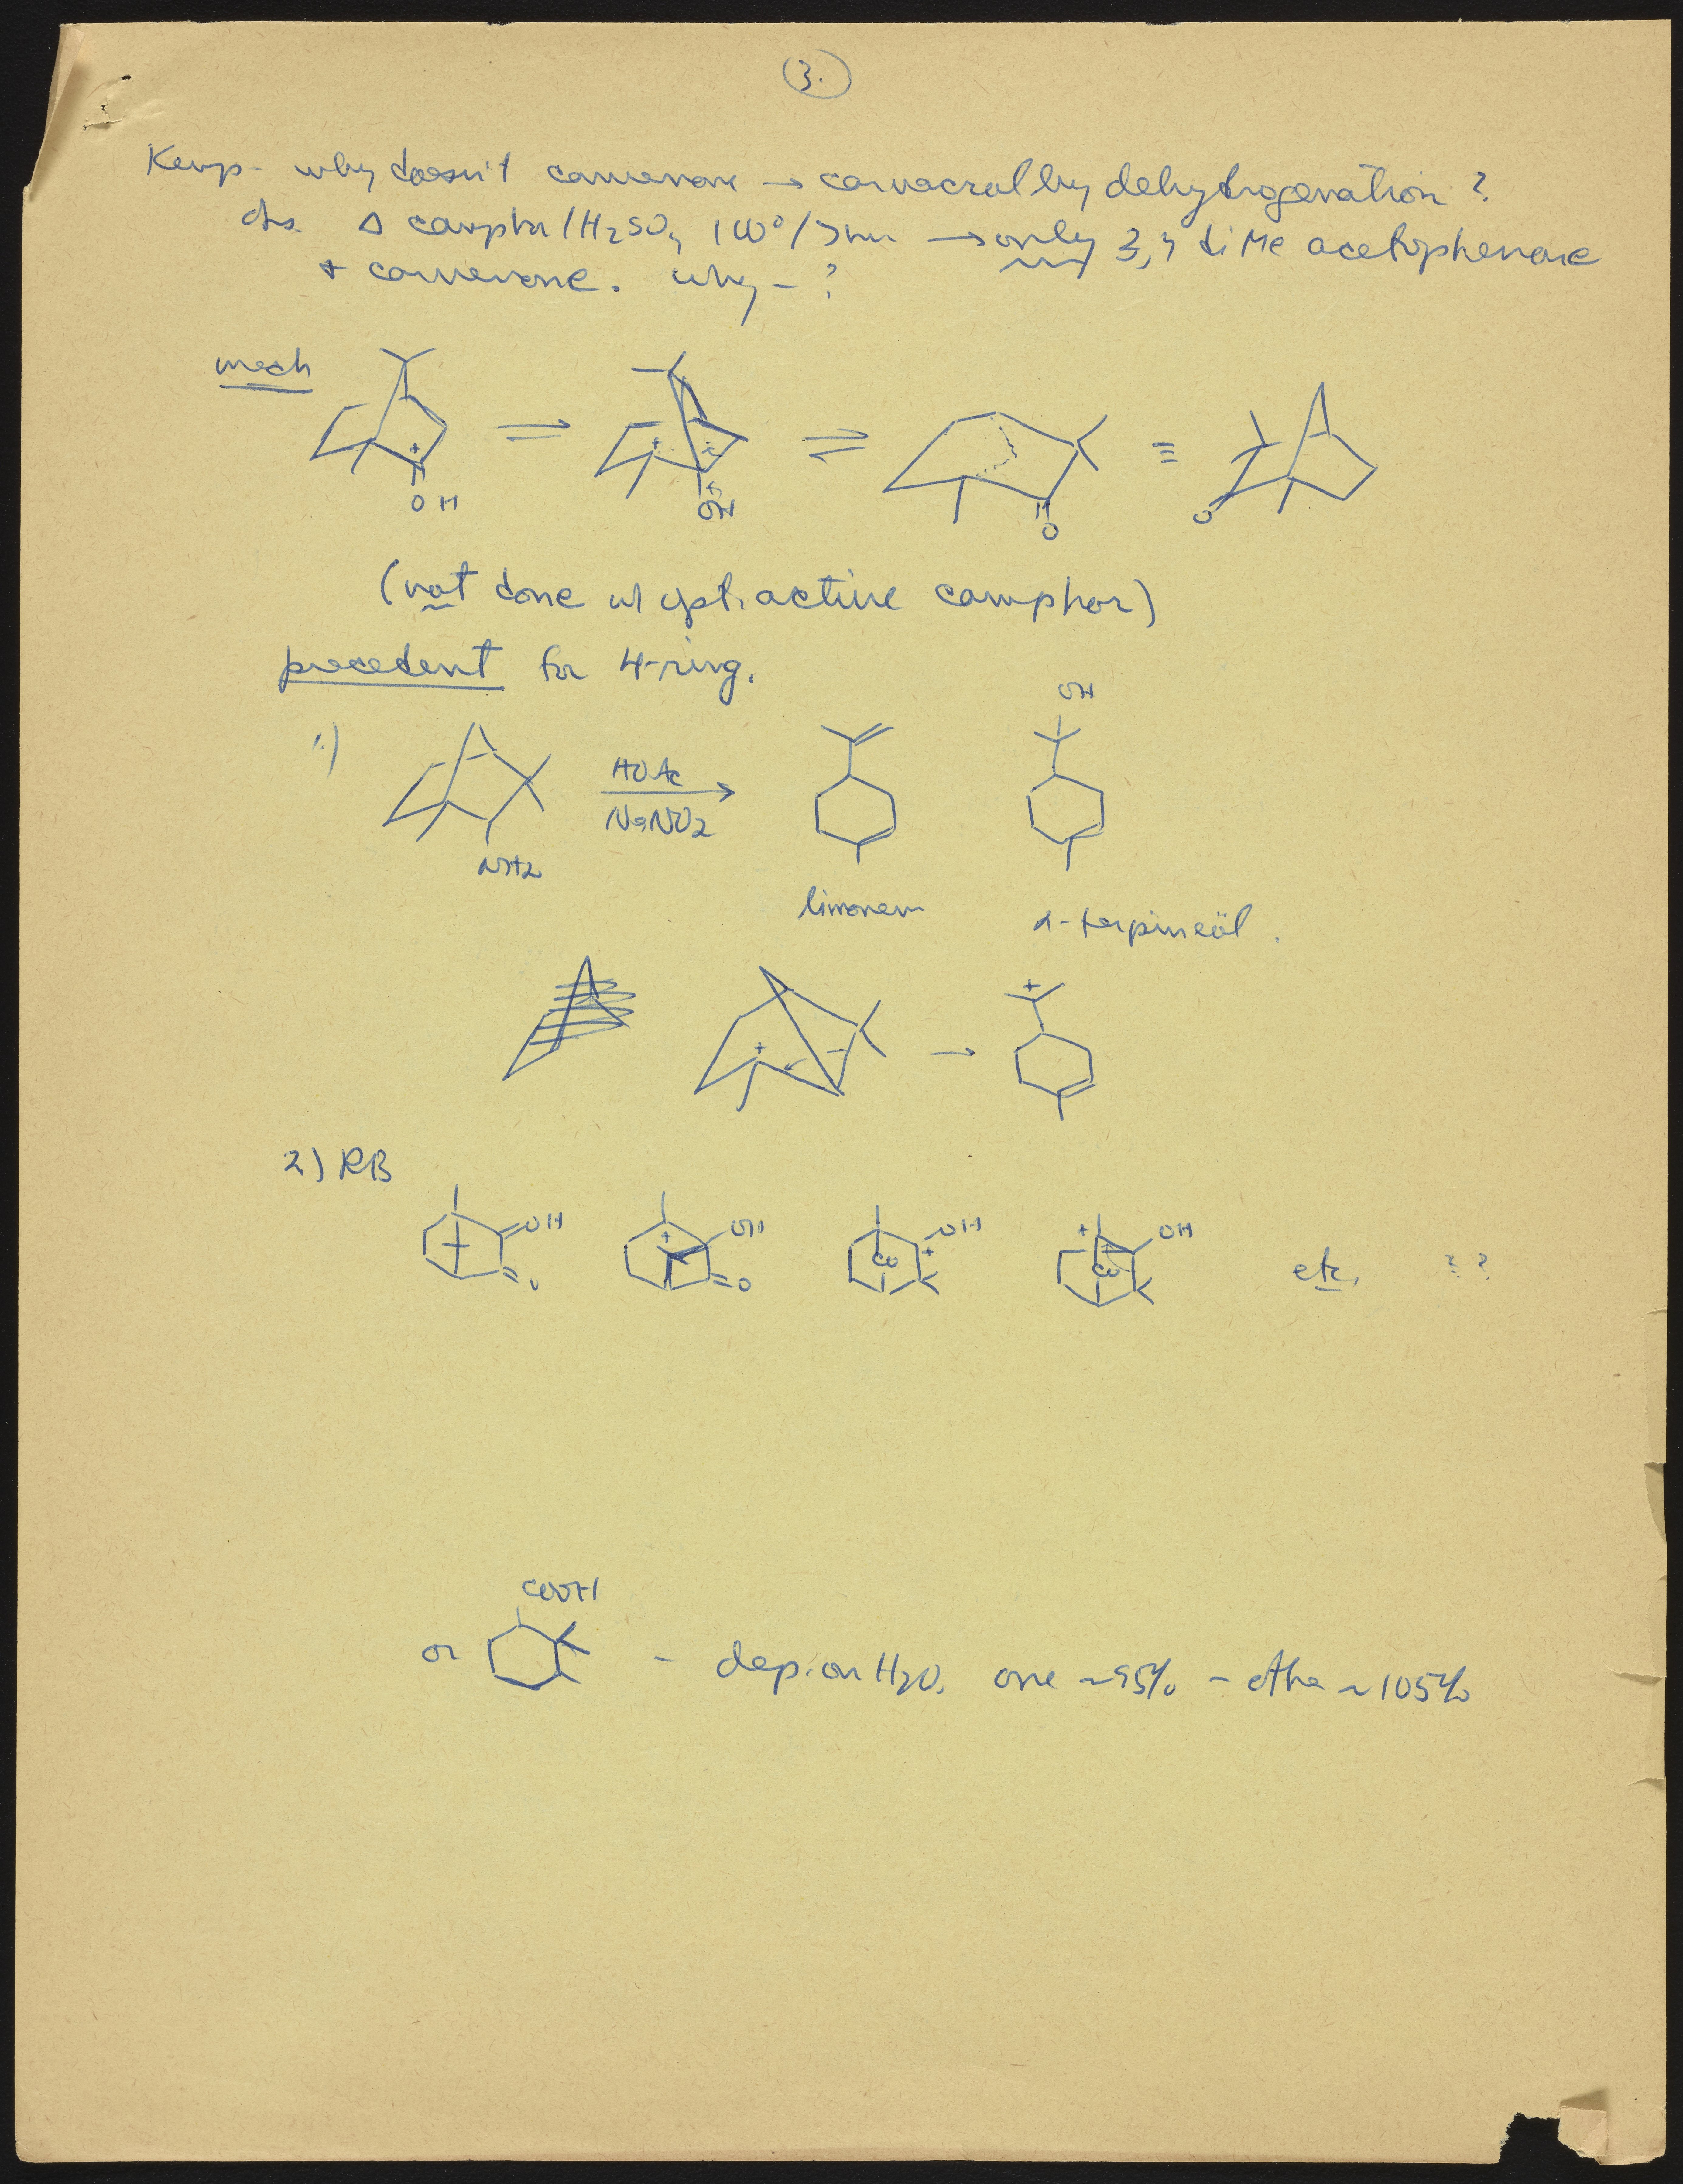 3.
Kemp - why doesn't carvenone → carvacrol by dehydrogenation ?
Δ camphor / H2SO4 100° / → only 3,4 diMe acetophenone
+ carvenone. why - ?
mech
OH
OH
O
O
(not done w opt. active camphor)
precedent for 4-ring.
1)
HOAc
NaNO2
NH2
OH
limonene
α-terpineol.
+
+
2) RB
OH
O
OH
O
CO
OH
CO
OH
etc. ??
COOH
or - dep. on H2O. one ~95% - other ~105%